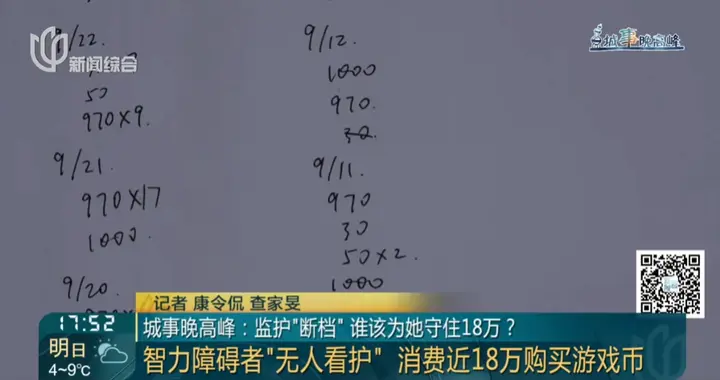 新闻综合
城事晚高峰
9/22
50
970×9.
9/21.
970×17
1000.
9/20
9/12.
1000
970.
30
9/11.
970
30
50×2.
1000
记者 康令侃 查家旻
17:52
城事晚高峰：监护"断档" 谁该为她守住18万？
明日
4~9℃
智力障碍者"无人看护" 消费近18万购买游戏币